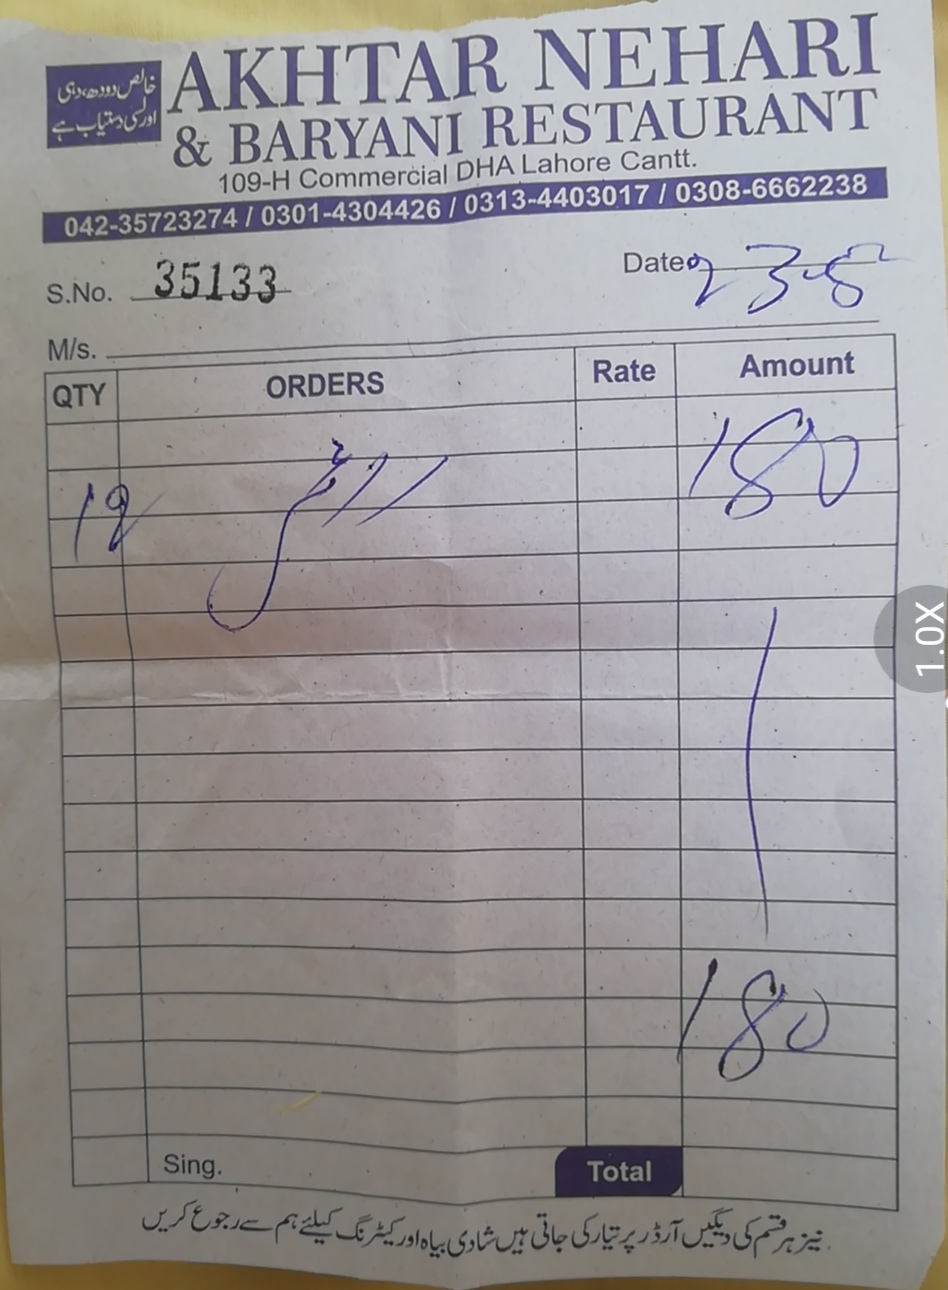 خالص دودھ، دہی
اور لسی دستیاب ہے
AKHTAR NEHARI
& BARYANI RESTAURANT
109-H Commercial DHA Lahore Cantt.
042-35723274 / 0301-4304426 / 0313-4403017 / 0308-6662238
S.No. 35133
Date 23-8
M/s.
QTY ORDERS Rate Amount
180
180
Sing. Total
نیز ہر قسم کی دیگیں آرڈر پر تیار کی جاتی ہیں شادی بیاہ اور کیٹرنگ کیلئے ہم سے رجوع کریں
1.0X